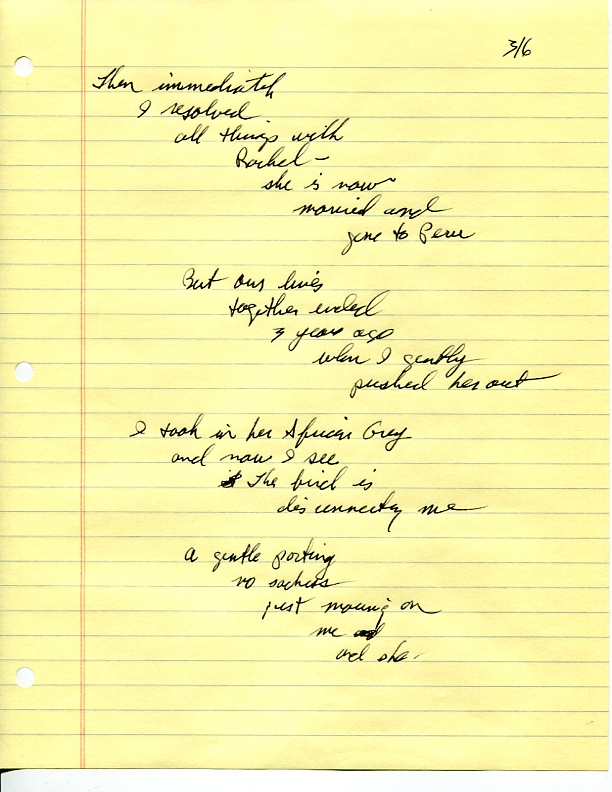 3/6
Then immediately
I resolved
all things with
Rachel -
she is now
married and
gone to Peru
But our lives
together ended
3 years ago
when I gently
pushed her out
I took in her African Grey
and now I see
The bird is
disconnecting me
A gentle parting
no sadness
just moving on
me
and she.